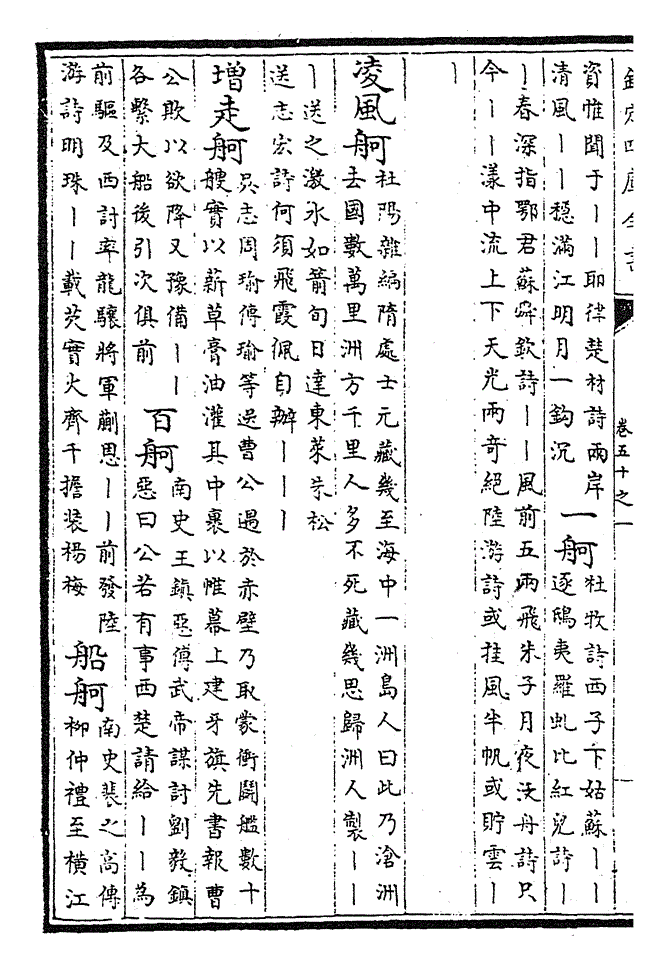 欽定四庫全書
卷五十之一
資惟聞于丨丨耶律楚材詩兩岸
清風丨丨穩滿江明月一鈎沉
一舸
杜牧詩西子下姑蘇丨丨
逐鴟夷羅虬比紅兒詩丨
丨春深指鄂君蘇舜欽詩丨丨風前五兩飛朱子月夜泛舟詩只
今丨丨漾中流上下天光兩奇絕陸游詩或挂風半帆或貯雲丨
丨
凌風舸
杜陽雜編隋處士元藏幾至海中一洲島人曰此乃滄洲
去國數萬里洲方千里人多不死藏幾思歸洲人製丨丨
丨送之激水如箭旬日達東萊朱松
送志宏詩何須飛霞佩自辦丨丨丨
增走舸
吳志周瑜傳瑜等逆曹公遇於赤壁乃取蒙衝鬭艦數十
艘實以薪草膏油灌其中裹以帷幕上建牙旗先書報曹
公欺以欲降又豫備丨丨
各繫大船後引次俱前
百舸
南史王鎮惡傳武帝謀討劉毅鎮
惡曰公若有事西楚請給丨丨為
前驅及西討率龍驤將軍蒯恩丨丨前發陸
游詩明珠丨丨載芡實火齊千擔裝楊梅
船舸
南史裴之高傳
柳仲禮至橫江